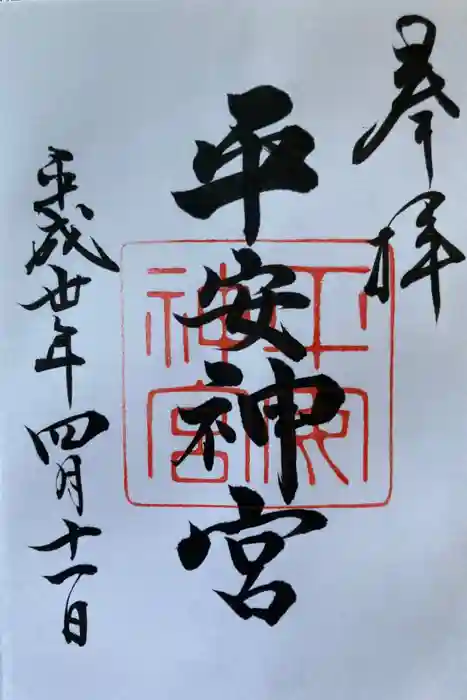 奉拝
平安神宮
平安神宮
平成卅年四月十一日